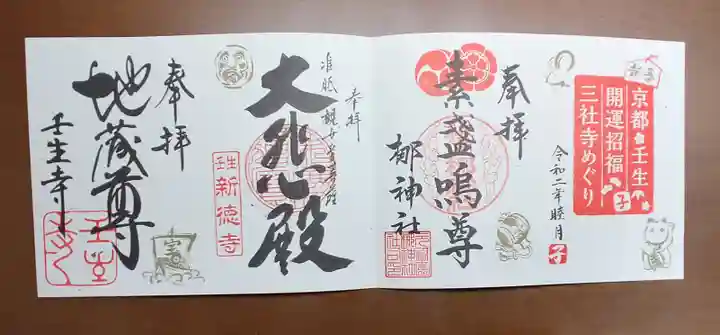 京都壬生
開運招福
三社寺めぐり
子
令和二年睦月
子
奉拝
素盞嗚尊
梛神社
奉拝
大悲殿
壬生
新徳寺
奉拝
地蔵尊
壬生寺